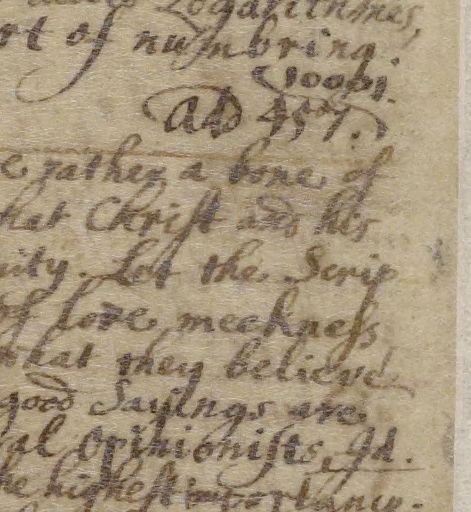 Logarithmes,
rt of numbring
Add 457.
e rather a bone of
hat Christ and his
nity. Let the Scrip
of love, meekness
what they believe
good Sayings are
al Opinionists, Id.
he highest importance.